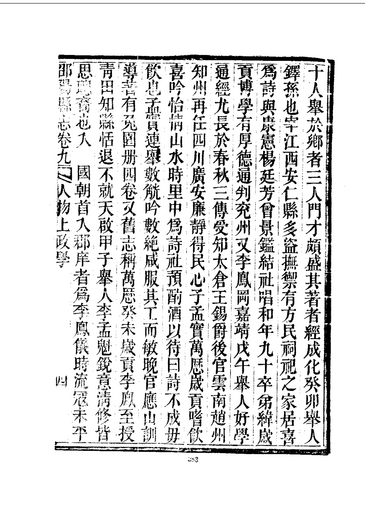 十人舉於鄉者三人門才頗盛其著者經成化癸卯舉人
鐸孫也宰江西安仁縣多盜撫禦有方民祠祀之家居喜
爲詩與康憲楊廷芳曾景鑑結社唱和年九十卒弟緯歲
貢博學有厚德通判兖州又李鳳岡嘉靖戊午舉人好學
通經尤長於春秋三傳受知太倉王錫爵後官雲南趙州
知州再任四川廣安廉靜得民心子孟實萬厯歲貢嗜飲
喜吟怡情山水時里中爲詩社預酌酒以待曰詩不成毋
飲也孟實連舉數觥吟數絶咸服其工而敏晚官應山訓
導著有兔園册四卷又舊志稱萬厯癸未歲貢李鳳至授
青田知縣恬退不就天啟甲子舉人李孟魁銳意清修皆
思瓊裔也入 國朝首入郡庠者爲李鳳儀時流寇未平
邵陽縣志卷九 人物上政學 四